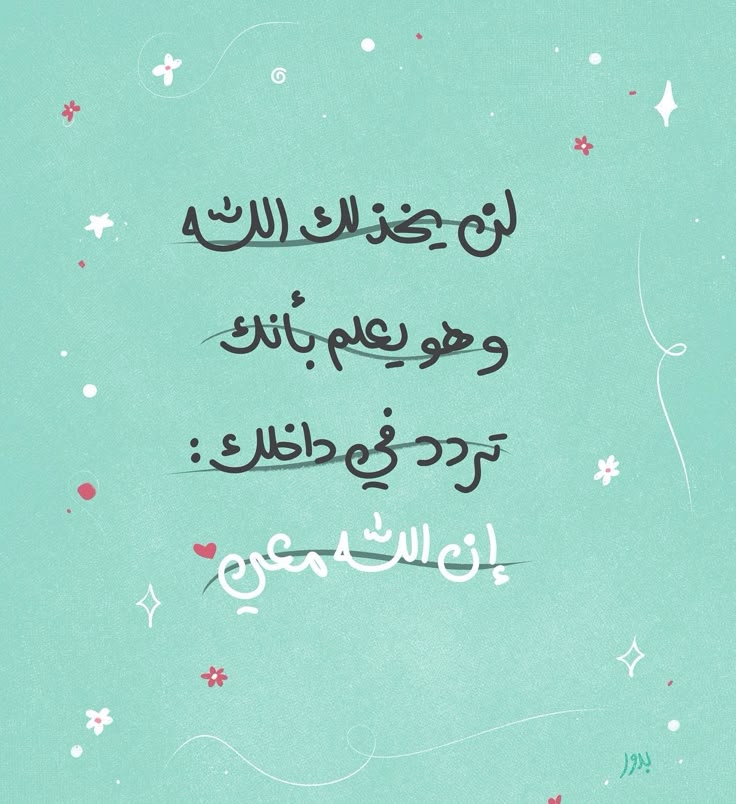 لن يخذلك الله
وهو يعلم بأنك
تردد في داخلك :
إن الله معي
بدور